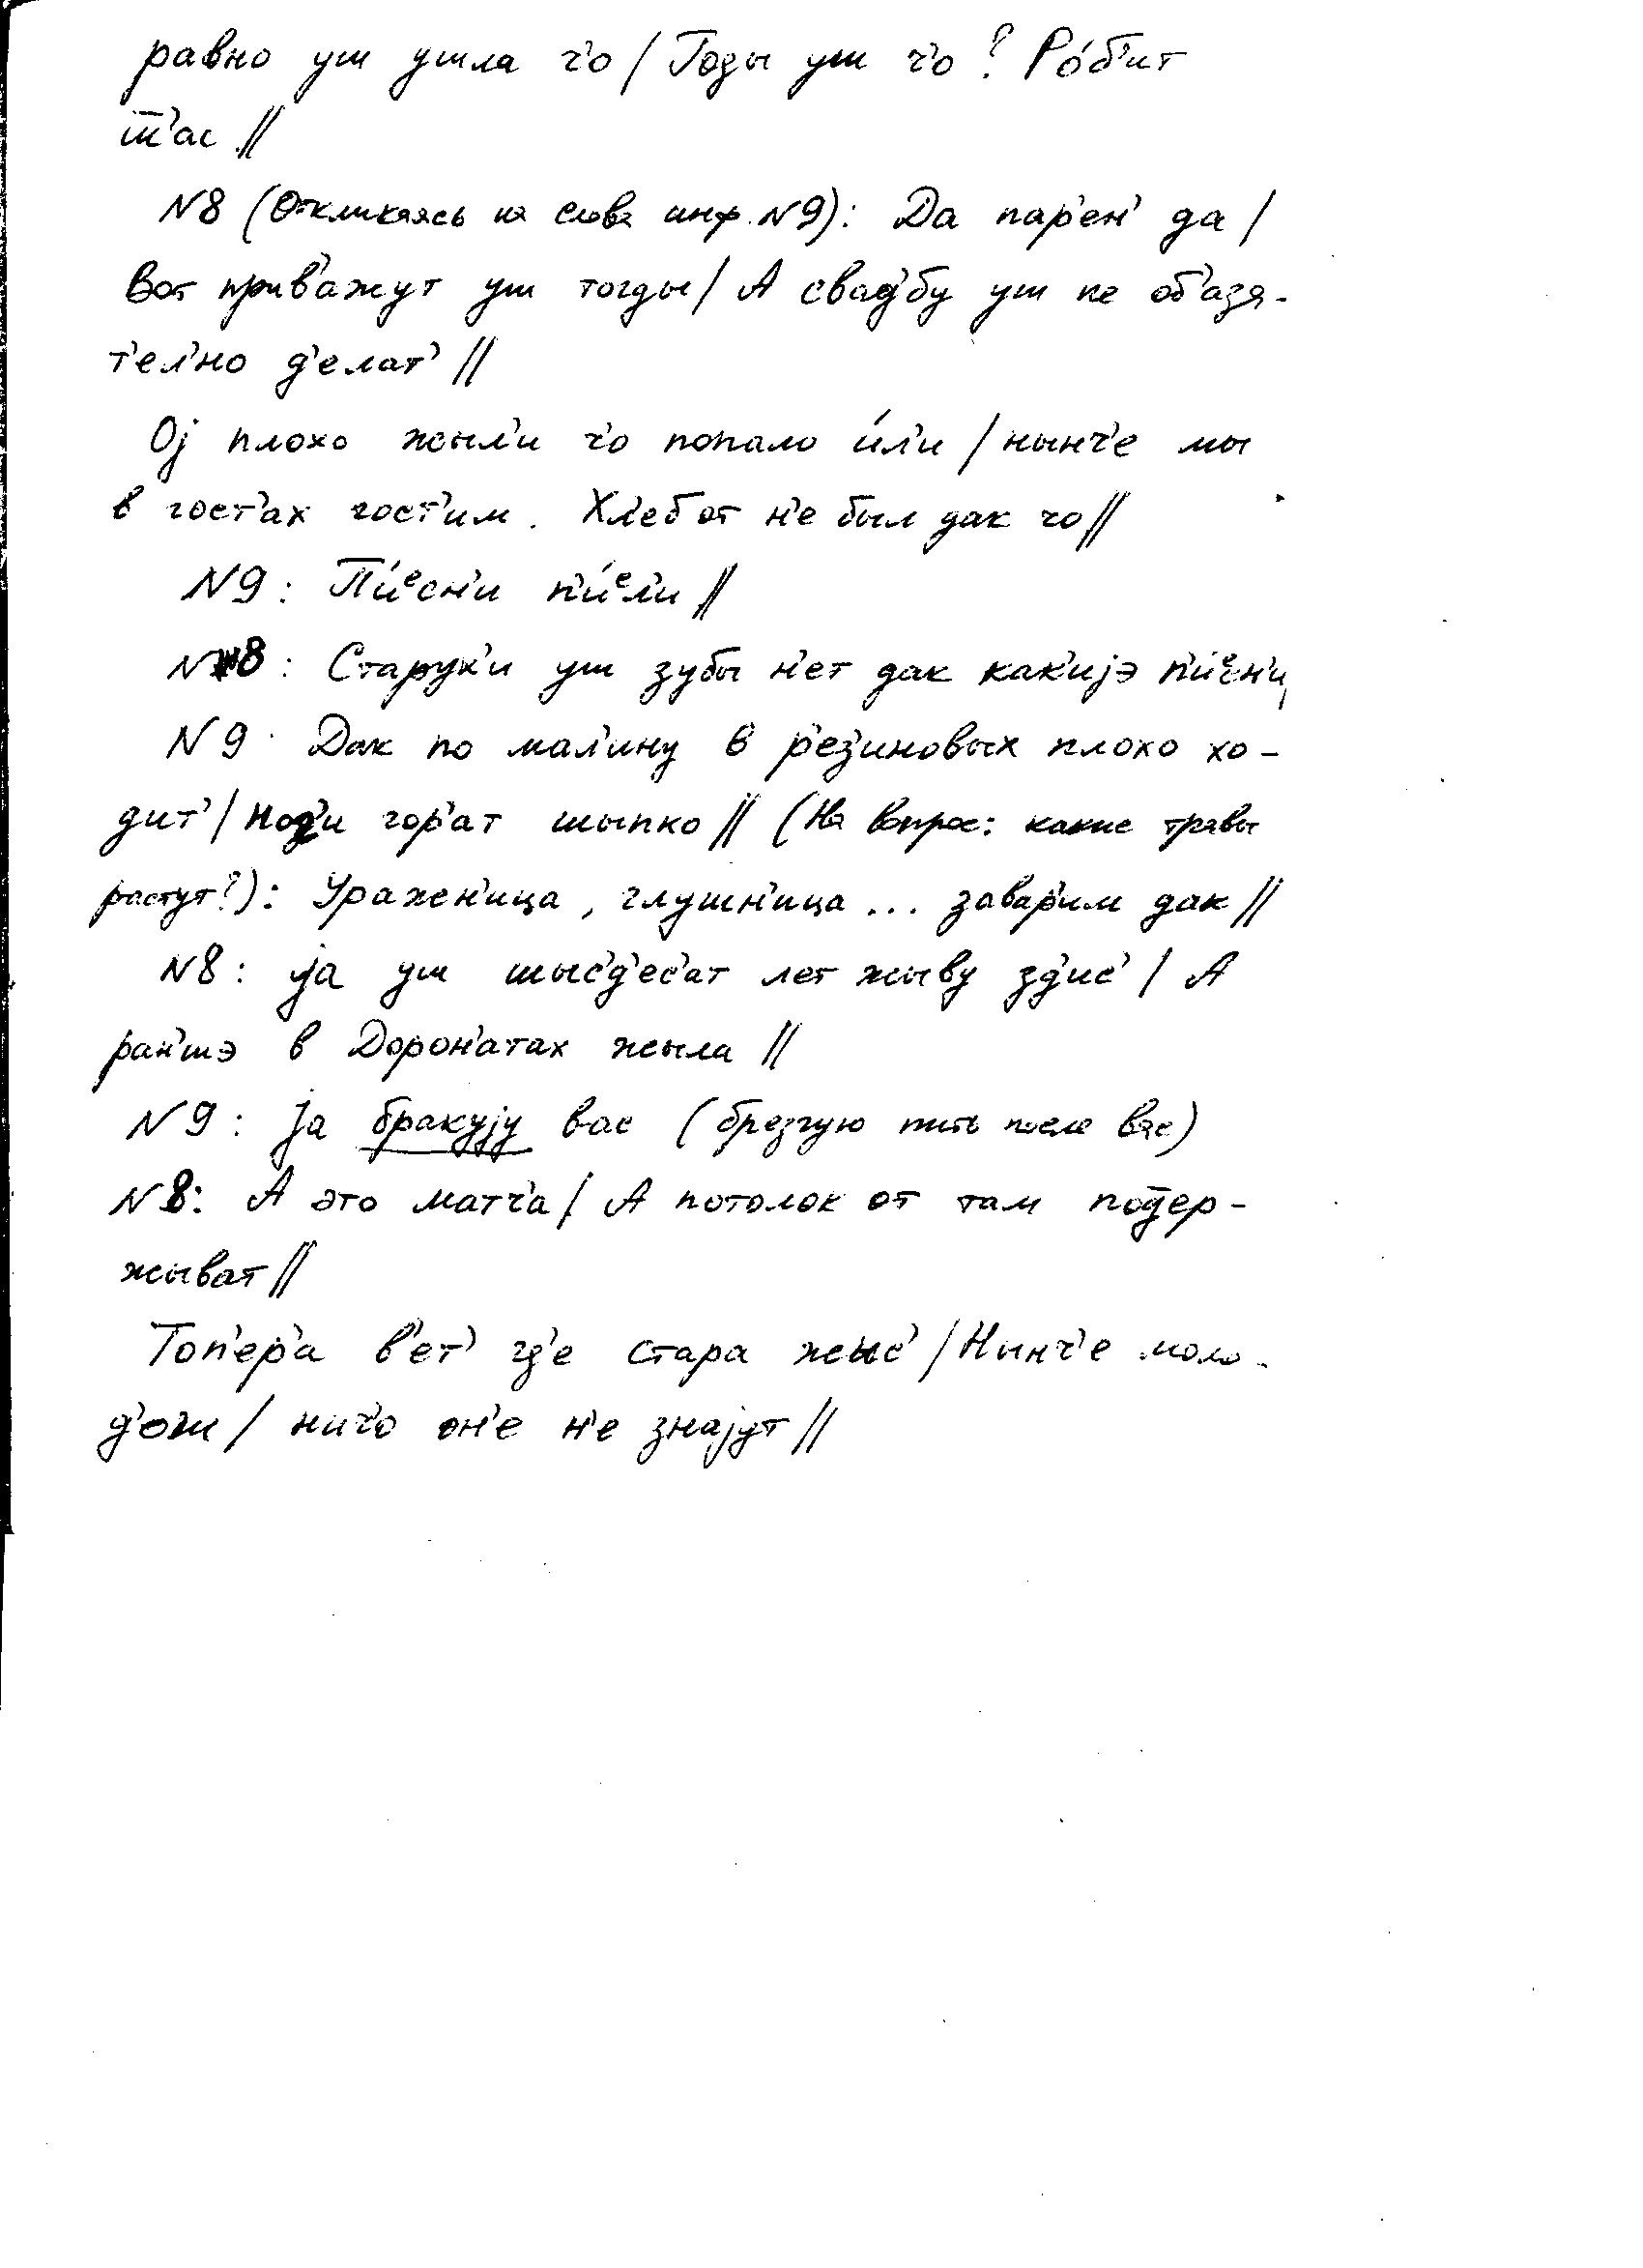 равно уш ушла ч'о / Годы уш ч'о? Ро́б'ит
ш̅'ас //
N8 (Откликаясь на слова инф. N9): Да пар'ен' да /
Вот прив'ажут уш тогды / А свад'бу уш не об'азя-
т'ел'но д'елат' //
Оj плохо жыл'и ч'о попало и́л'и / нынч'е мы
в гост'ах гост'им. Хл'еб от н'е был дак чо //
N9: П'и́ᵉсн'и п'и́ᵉл'и //
N8: Старух'и уш зубы н'ет дак как'иjэ п'и́ᵉсн'и
N9: Дак по мал'ину в р'ез'иновых плохо хо-
дит' / Ног'и гор'ат шыпко // (На вопрос: какие травы
растут?): Уражен'ица, глушн'ица... завар'им дак //
N8: jа уш шыс'д'ес'ат лет жыву зд'ис' / А
ран'шэ в Дорон'атах жыла //
N9: Jа бракуjу вас (брезгую пить после вас)
N8: А это матч'а / А потолок от там под̅ер-
жыват //
Топ'ер'а в'ет' гд'е стара жыс' / Нынч'е моло-
д'ош / нич'о он'е н'е знаjут //